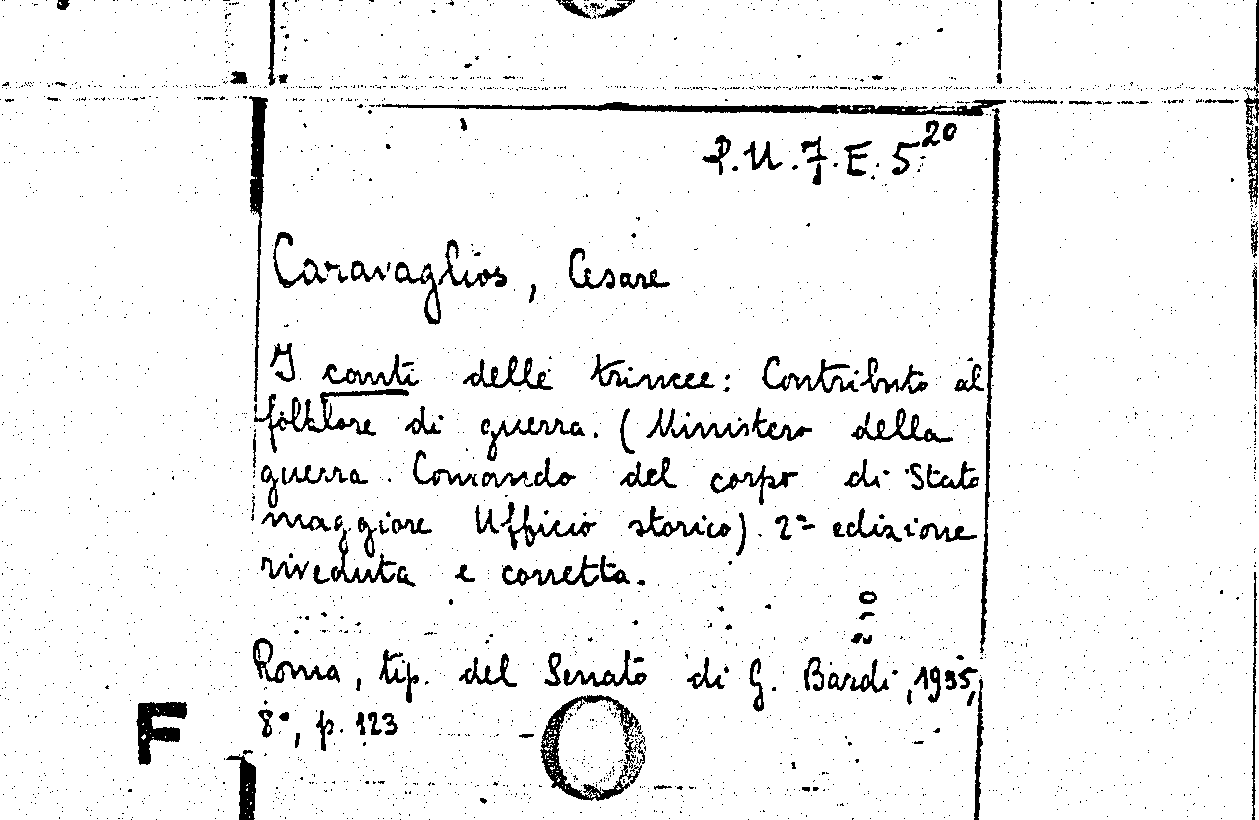 P.U.7.E.5²⁰
Caravaglios, Cesare
I canti delle trincee: Contributo al
folklore di guerra. (Ministero della
guerra. Comando del corpo di Stato
maggiore Ufficio storico). 2ª edizione
riveduta e corretta.
Roma, tip. del Senato di G. Bardi, 1935,
8°, p. 123
F